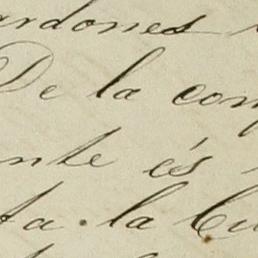 ardones
De la con
nte és
ta. la Cu